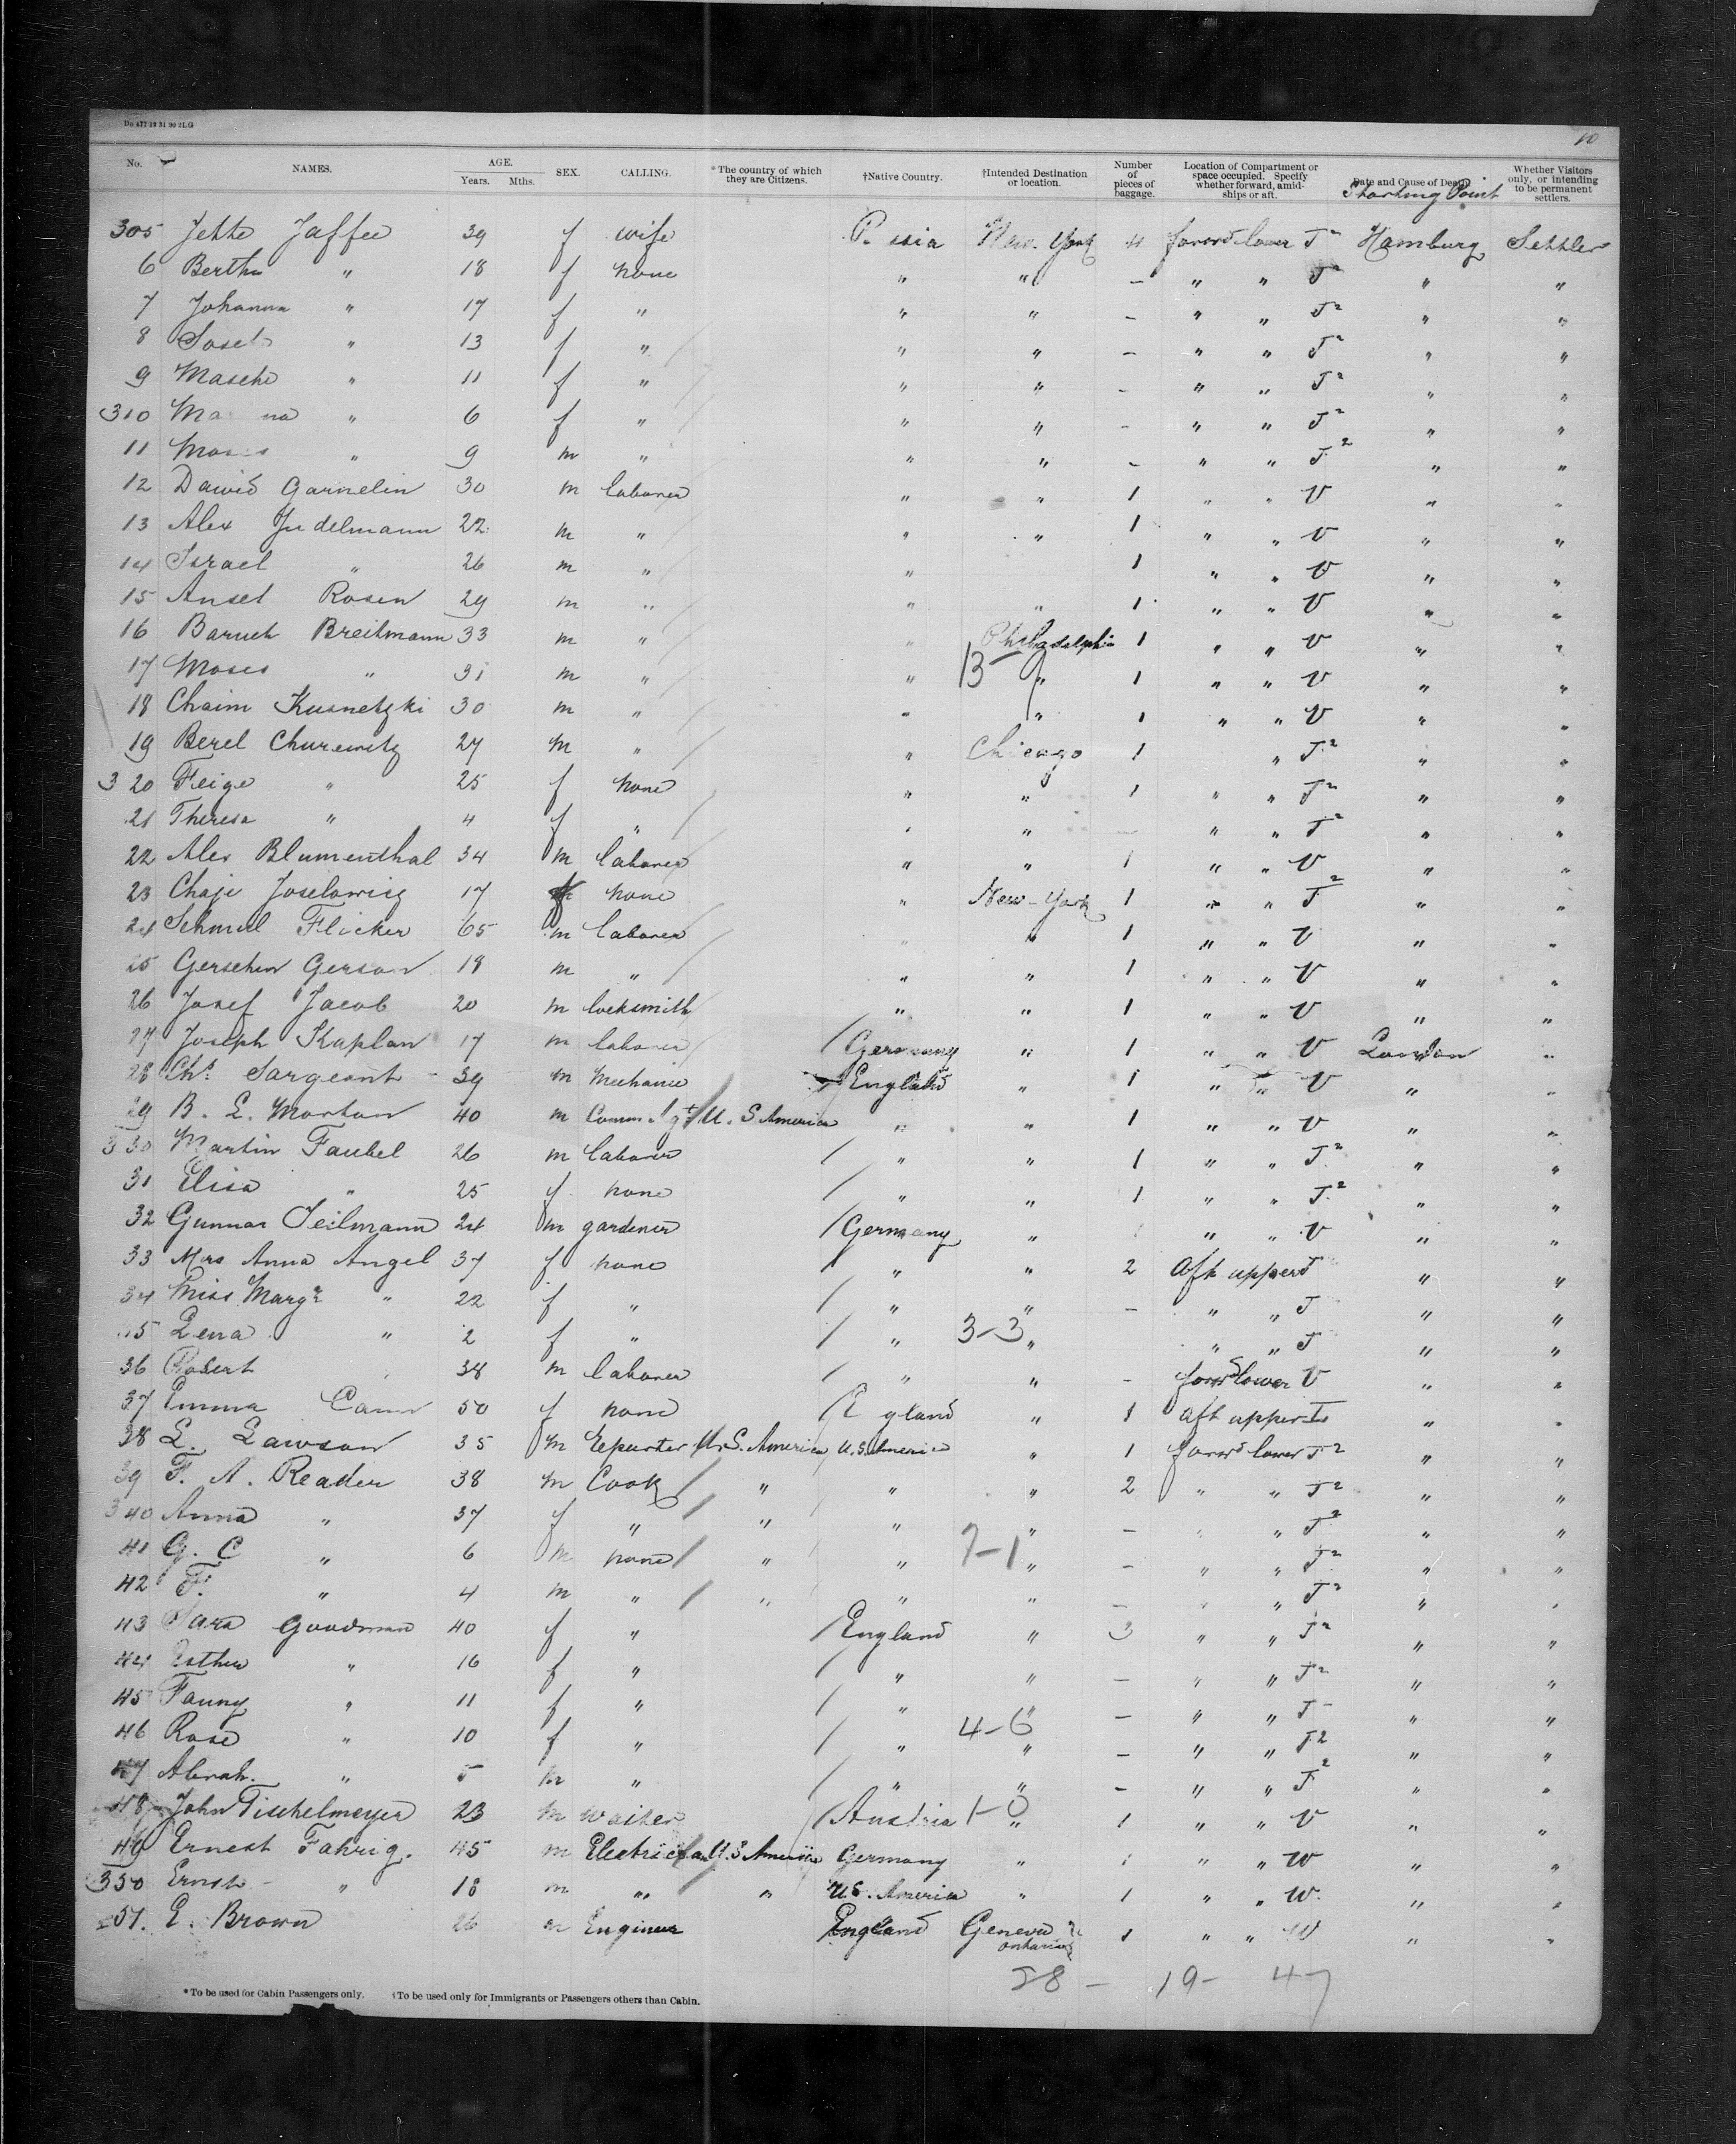 10
No. NAMES. AGE. Years. Mths. SEX. CALLING. *The country of which they are Citizens. †Native Country. †Intended Destination or location. Number of pieces of baggage. Location of Compartment or space occupied. Specify whether forward, amidships or aft. Date and Cause of Death Starting Point Whether Visitors only, or intending to be permanent settlers.
305 Jette Jaffee 39 f wife New-York 4 forwd lower T2 Hamburg Settler
6 Bertha " 18 f none " " - " " T2 " "
7 Johanna " 17 f " " " - " " T2 " "
8 " 13 f " " " - " " T2 " "
9 Masche " 11 f " " " - " " T2 " "
310 " 6 f " " " - " " T2 " "
11 " 9 m " " " - " " T2 " "
12 Dawid Garnelin 30 m laborer " " 1 " " V " "
13 Alex Judelmann 22 m " " " 1 " " V " "
14 Israel " 26 m " " 1 " " V " "
15 Ansel Rosen 29 m " " " 1 " " V " "
16 Baruch Breitmann 33 m " " Philadelphia 1 " " V " "
17 Moses " 31 m " " 13 - " 1 " " V " "
18 Chaim Kusnetzki 30 m " " " 1 " " V " "
19 Berel Churewitz 27 m " " Chicago 1 " T2 " "
320 Feige " 25 f none " " 1 " " T2 " "
21 Theresa " 4 f " " " - " " T2 " "
22 Alex Blumenthal 34 m laborer " " 1 " " V " "
23 Chaje Joselowisz 17 f none " New-York 1 " " T2 " "
24 Schmul Flicker 65 m laborer " " 1 " " V " "
25 Gerschen Gerson 18 m " " " 1 " " V " "
26 Josef Jacob 20 m locksmith " " 1 " " V " "
27 Joseph Kaplan 17 m laborer Germany " 1 " " V London "
28 Chs. Sargeant 39 m Mechanic England " 1 " " V " "
29 B. L. Morton 40 m U. S America " " 1 " " V " "
330 Martin Faubel 26 m laborer " " 1 " " T2 " "
31 Elisa " 25 f none " " 1 " " T2 " "
32 Gunnar Teilmann 24 m gardener Germany " " " V " "
33 Mrs Anna Angel 37 f none " " 2 Aft upper T " "
34 Miss Margr " 22 f " " " - " " T " "
35 Lena " 2 f " " 3-3 " " " T " "
36 Robert 38 m laborer " " - forwd lower V " "
37 Emma 50 f none England " 1 aft upper " "
38 L. Lawson 35 m U. S. America U. S. America " 1 forwd lower T2 " "
39 F. A. Reader 38 m Cook " " " 2 " " T2 " "
340 Anna " 37 f " " " " - " " T2 " "
41 G. C " 6 m none " " 7-1 " - " " T2 " "
42 F. " 4 m " " " " - " " T2 " "
43 Sara Goodman 40 f " England " 3 " " T2 " "
44 Esther " 16 f " " " - " " T2 " "
45 Fanny " 11 f " " " - " " T " "
46 Rose " 10 f " " 4-6 " - " " T2 " "
47 Abrah. " 5 m " " " - " " T2 " "
48 John Tischelmeyer 23 m waiter Austria 1-0 " 1 " " V " "
49 Ernest Fahrig. 45 m Electrician U. S America Germany " 1 " " W " "
350 Ernst " 18 m " " U.S. America " 1 " " W. " "
351. E. Brown 26 m Engineer England Geneva Ontario 1 " " W " "
28 - 19 - 47
*To be used for Cabin Passengers only. †To be used only for Immigrants or Passengers others than Cabin.